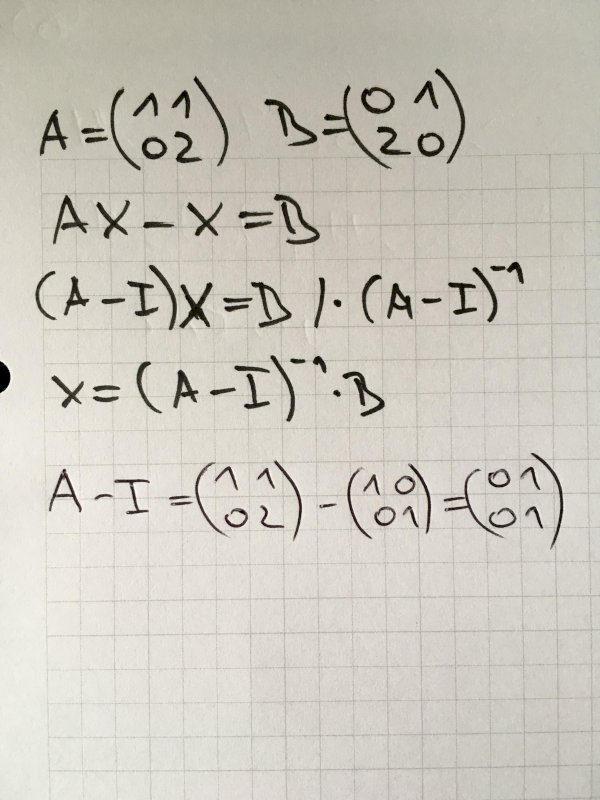 A = (1 1 0 2) B = (0 1 2 0)
AX - X = B
(A - I)X = B / · (A - I)⁻¹
X = (A - I)⁻¹ · B
A - I = (1 1 0 2) - (1 0 0 1) = (0 1 0 1)